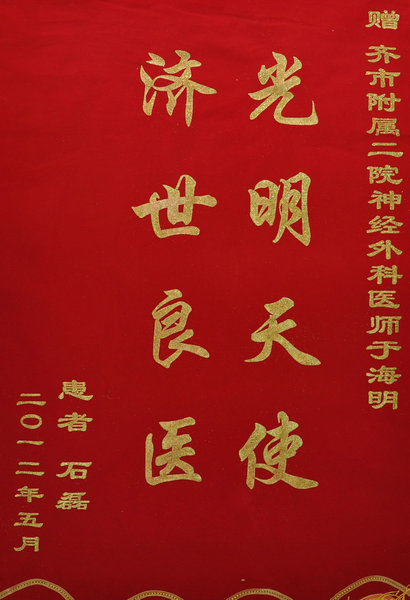 赠 齐市附属二院神经外科医师于海明
光明天使
济世良医
患者 石磊
二〇一二年五月